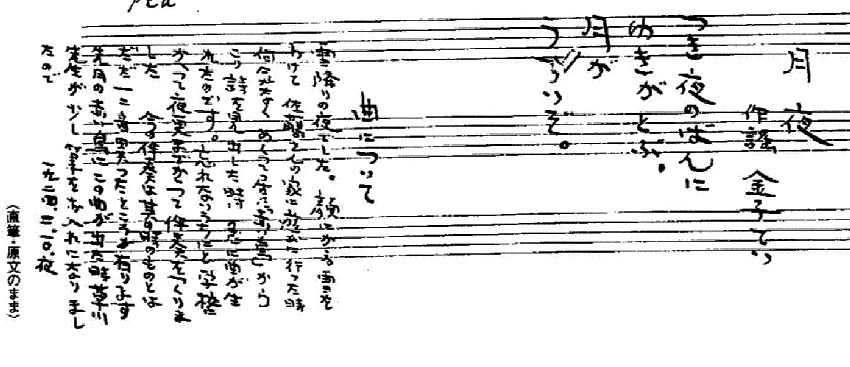 月夜
作謡 金子てい
つき夜のばんに
ゆきがとぶ。
月が
つうついぞ。
曲について
雪降りの夜でした。顔にかゝる雪を
わけて 佐藤さんの家に遊びに行った時
何気なく めくった 赤い鳥 から
この詩を見出した時 急に曲が生
れたのです。忘れないうちにと 学校に
かへって夜更までかゝって 伴奏をつくりま
した 今の伴奏は其の時のものとは
たゞ 一二音異ったところが有ります
先月の赤い鳥に この曲が出た時 草川
先生が 少し 筆をお入れになりまし
たので 一九二四、二、一〇、夜
〈直筆・原文のまま〉